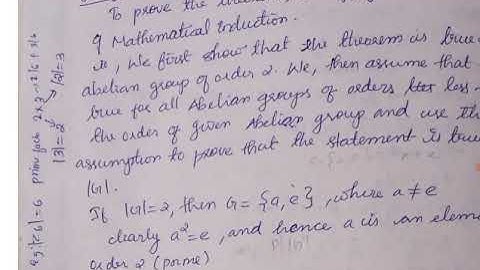 To prove the
of Mathematical Induction.
ie, We first show that the theorem is true
abelian group of order 2. We, then assume that
true for all Abelian groups of orders less
the order of given Abelian group and use the
assumption to prove that the statement is true
|G|.
If |G|=2, then G = {a, e}, where a ≠ e
clearly a²=e, and hence a is an elem
order 2 (prime)
eg: |Z6| = 6 prime facts 2x3 → 2|6 & 3|6
|3|=2 |2|=3